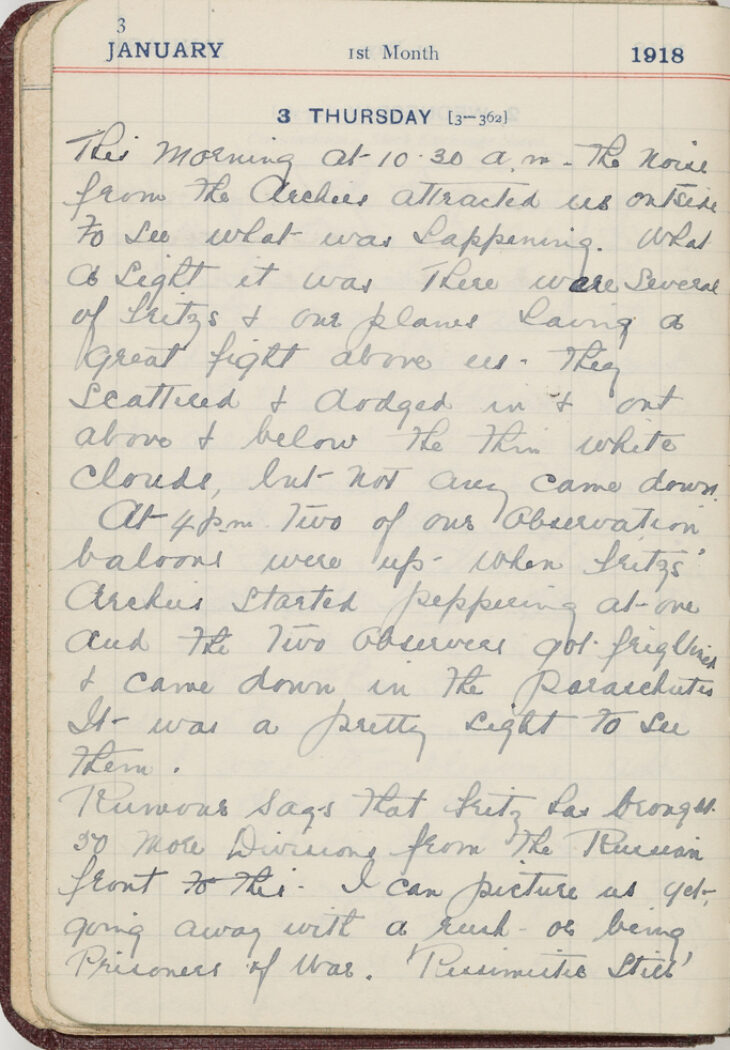 3
JANUARY 1st Month 1918
3 THURSDAY [3—362]
This morning at 10.30 a.m. the noise
from the Archies attracted us outside
to see what was happening. What
a sight it was There were several
of Fritzs & our planes having a
great fight above us. They
scattered & dodged in & out
above & below the thin white
clouds, but not any came down.
At 4 pm Two of our observation
baloons were up when Fritzs'
Archies started peppering at one
and the two observers got frightened
& came down in the Paraschutes
It was a pretty sight to see
them.
Rumour says that Fritz has brought
50 more Divisions from the Russian
front to this. I can picture us yet,
going away with a rush or being
Prisoners of War. 'Pessimistic Still'